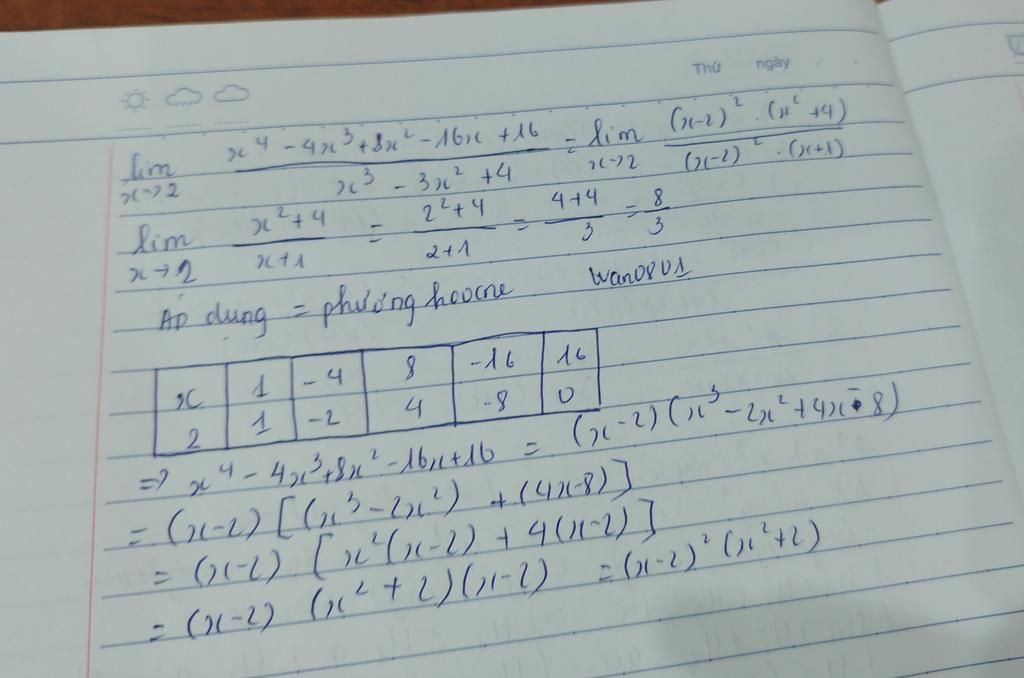 Thứ ngày
lim x→2 (x⁴ - 4x³ + 8x² - 16x + 16)/(x³ - 3x² + 4) = lim x→2 ((x-2)² . (x² + 4))/((x-2)² . (x+1))
lim x→2 (x² + 4)/(x+1) = (2² + 4)/(2+1) = (4+4)/3 = 8/3
Áp dung = phương hoocne wan0801
x | 1 | -4 | 8 | -16 | 16
2 | 1 | -2 | 4 | -8 | 0
⇒ x⁴ - 4x³ + 8x² - 16x + 16 = (x-2)(x³ - 2x² + 4x - 8)
= (x-2) [(x³ - 2x²) + (4x-8)]
= (x-2) [x²(x-2) + 4(x-2)]
= (x-2) (x² + 2)(x-2) = (x-2)² (x²+2)